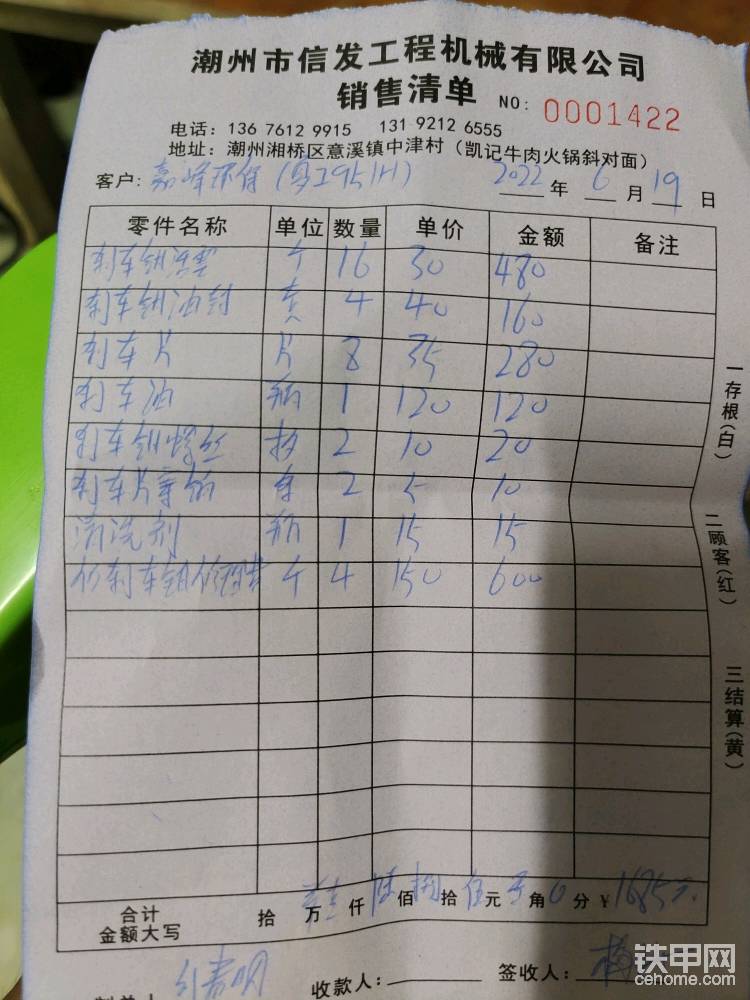 潮州市信发工程机械有限公司
销售清单 NO: 0001422
电话：136 7612 9915 131 9212 6555
地址：潮州湘桥区意溪镇中津村（凯记牛肉火锅斜对面）
客户：嘉峰环保（厦工951H） 2022年6月19日
零件名称 单位 数量 单价 金额 备注
刹车钳活塞 个 16 30 480
刹车钳油封 套 4 40 160
刹车片 片 8 35 280
刹车油 瓶 1 120 120
刹车钳螺丝 2 10 20
刹车片 2 5 10
清洗剂 瓶 1 15 15
刹车钳 个 4 150 600
合计
金额大写 拾 万 壹仟陆佰捌拾伍元 角 分 ￥1685元
收款人： 签收人：
制单人
一存根（白）
二顾客（红）
三结算（黄）
铁甲网
cehome.com